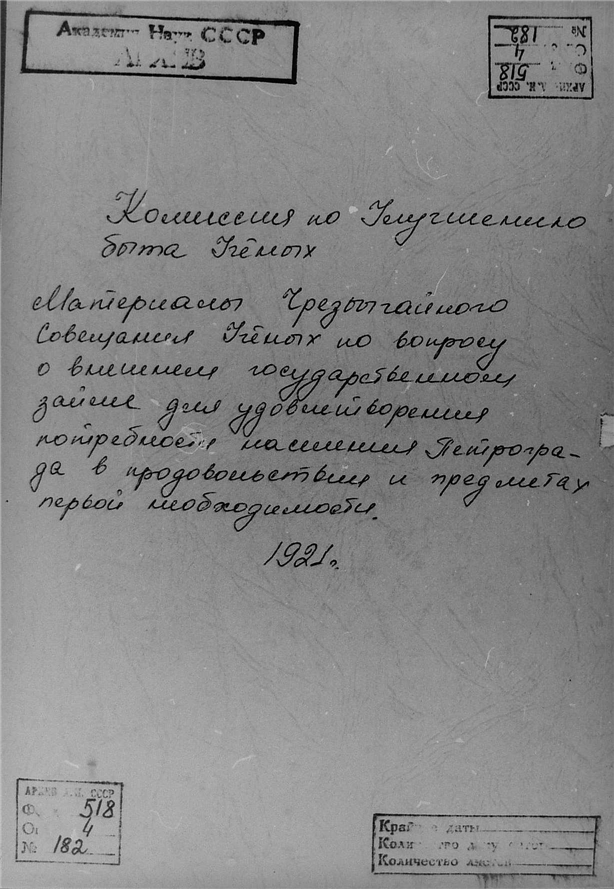 Академия Наук СССР
АРХИВ
АРХИВ А.Н. СССР
Ф. 518
Оп. 4
№ 182
Комиссия по Улучшению
быта Учёных
Материалы Чрезвычайного
Совещания Учёных по вопросу
о внешнем государственном
займе для удовлетворения
потребности населения Петрогра-
да в продовольствии и предметах
первой необходимости.
1921г.
АРХИВ А.Н. СССР
Ф. 518
Оп. 4
№ 182
Крайние даты
Количество документов
Количество листов